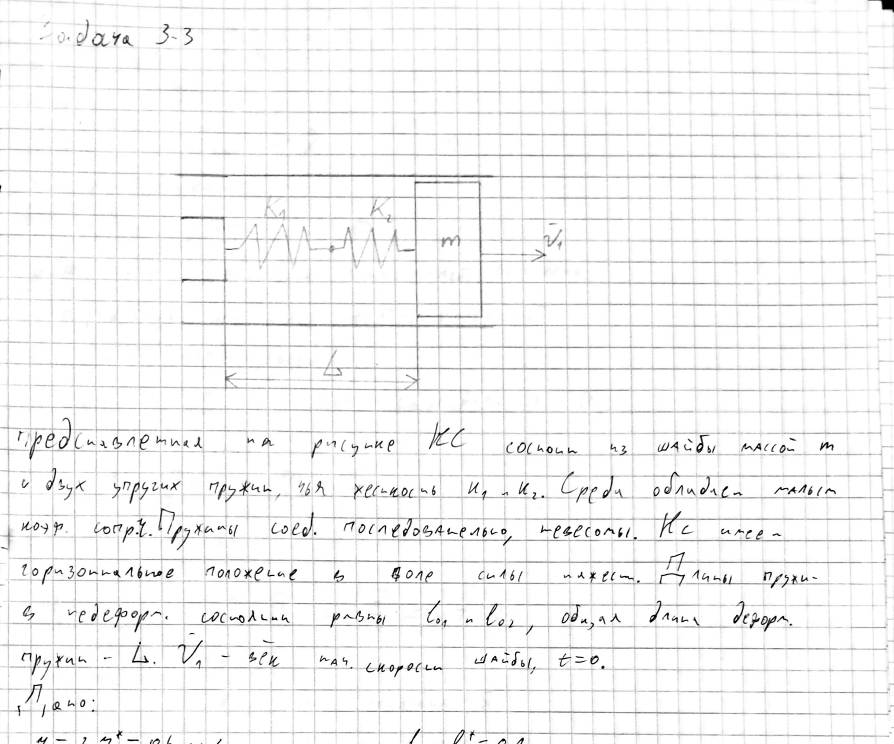 Задача 3-3
K₁ K₂ m v̄₁
L
представленная на рисунке КС состоит из шайбы массой m
и двух упругих пружин, чья жесткость K₁ и K₂. Среда обладает малым
коэф. сопр. r. Пружины соед. последовательно, невесомы. КС имее-
горизонтальное положение в поле силы тяжест. Длины пружи-
в недеформ. состоянии равны l₀₁ и l₀₂, общая длина деформ.
пружин - L. V̄₁ - век нач. скорости шайбы, t=0.
Дано: